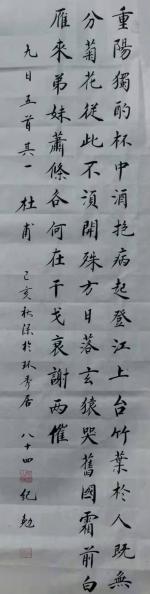 重陽獨酌杯中酒抱病起登江上台竹葉於人既無
分菊花從此不須開殊方日落玄猿哭舊國霜前白
雁來弟妹蕭條各何在干戈衰謝兩催
九日五首其一 杜甫 己亥秋深於环秀居 八十四 纪勉